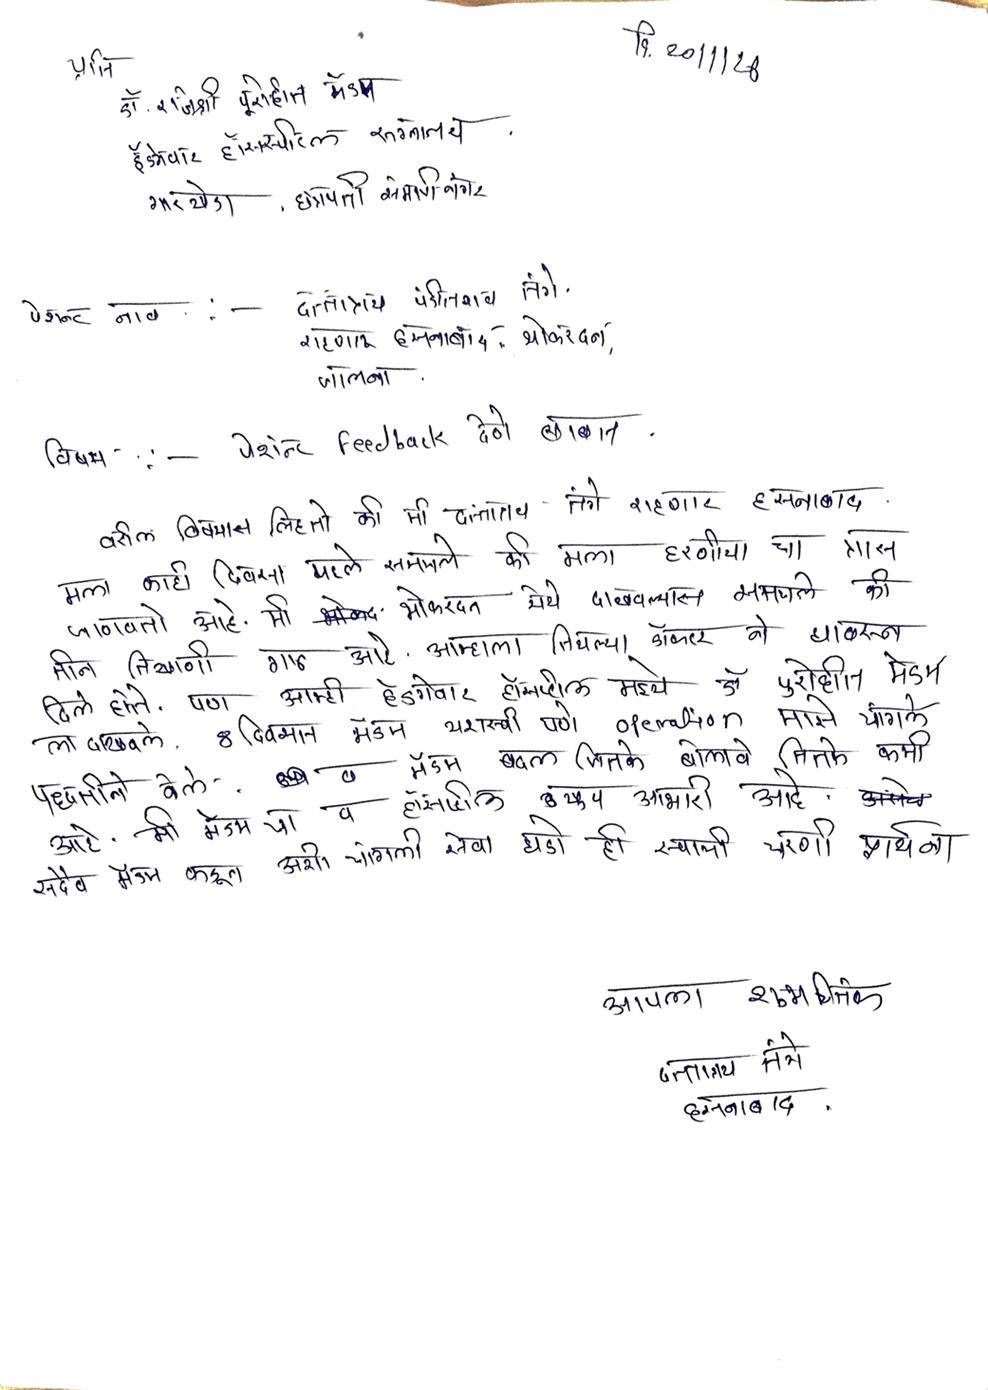 दि. 20/1/26
प्रति
डॉ. राजश्री पुरोहीत मॅडम
हेडगेवार हॉस्पीटल रुग्नालय.
गारखेडा, छत्रपती संभाजीनगर
पेशन्ट नाव :- दत्तात्रय पंडीतराव तंगे.
राहणार हसनाबाद, भोकरदन,
जालना.
विषय :- पेशंन्ट Feedback देणे बाबात.
वरील विषयास लिहतो की मी दत्तात्रय तंगे राहणार हसनाबाद.
मला काही दिवसा पहले समजले की मला हरणीया चा त्रास
जाणवतो आहे. मी भोकरदन येथे दाखवल्यास समजले की
तीन ठिकाणी गाठ आहे. आम्हाला तिथल्या डॉक्टर ने घाबरून
दिले होते. पण आम्ही हेडगेवार हॉस्पीटल मध्ये डॉ पुरोहीत मॅडम
ला दाखवले. 8 दिवसात मॅडम यशस्वी पणे operation माझे चांगले
पध्दतीने केले. व मॅडम बदल जितके बोलावे तितके कमी
आहे. मी मॅडम चा व हॉस्पीटल आभारी आहे.
सदैव मॅडम कडून अशी चांगली सेवा घडो ही स्वामी चरणी प्रार्थना
आपला शुभचिंतक
दत्तात्रय तंगे
हसनाबाद.